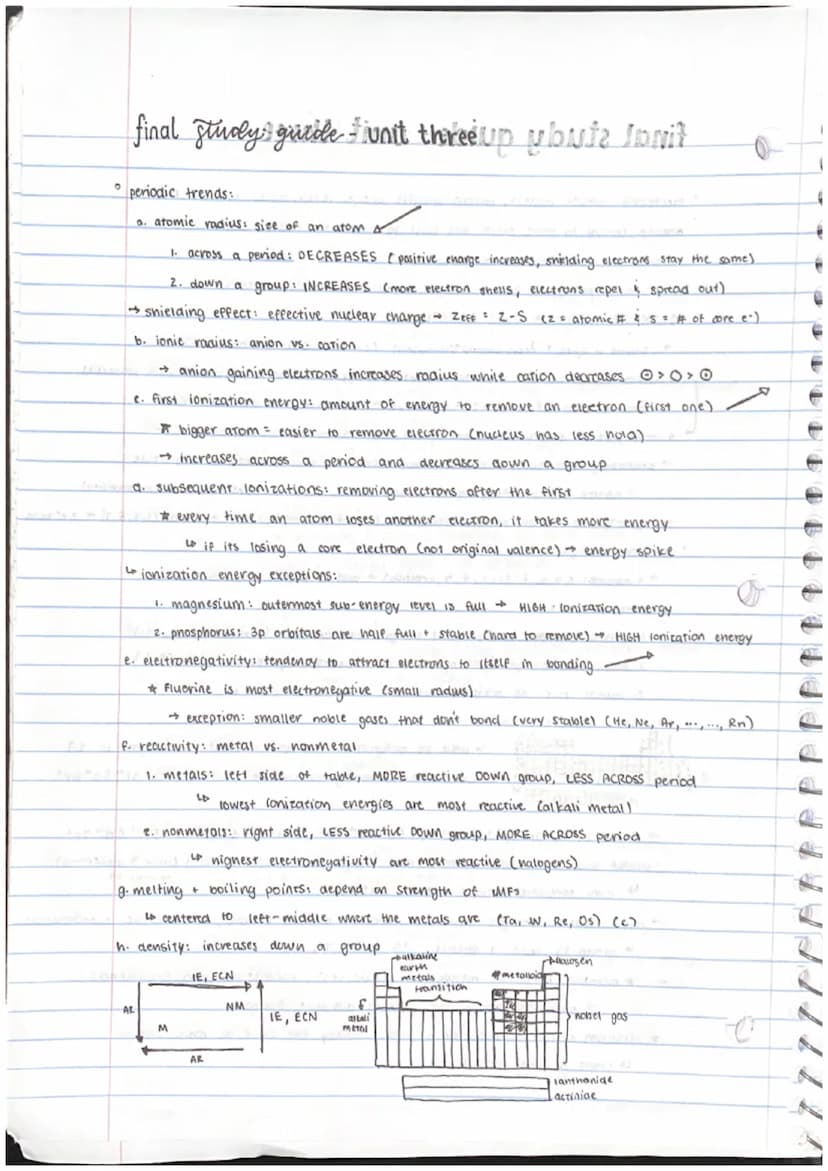 final study guide - unit three
° periodic trends:
a. atomic radius: size of an atom
1. across a period: DECREASES (positive charge increases, shielding electrons stay the same)
2. down a group: INCREASES (more electron shells, electrons repel & spread out)
→ shielding effect: effective nuclear charge → Zeff = Z-S (Z = atomic # & S = # of core e⁻)
b. ionic radius: anion vs. cation
→ anion gaining electrons increases radius while cation decreases ⊖ > O > ⊕
c. first ionization energy: amount of energy to remove an electron (first one)
* bigger atom = easier to remove electron (nucleus has less hold)
→ increases across a period and decreases down a group
d. subsequent ionizations: removing electrons after the first
* every time an atom loses another electron, it takes more energy
↳ if its losing a core electron (not original valence) → energy spike
↳ ionization energy exceptions:
1. magnesium: outermost sub-energy level is full → HIGH ionization energy
2. phosphorus: 3p orbitals are half full + stable (hard to remove) → HIGH ionization energy
e. electronegativity: tendency to attract electrons to itself in bonding
* fluorine is most electronegative (small radius)
→ exception: smaller noble gases that don't bond (very stable) (He, Ne, Ar, ..., ..., Rn)
f. reactivity: metal vs. nonmetal
1. metals: left side of table, MORE reactive DOWN group, LESS ACROSS period
↳ lowest ionization energies are most reactive (alkali metal)
2. nonmetals: right side, LESS reactive DOWN group, MORE ACROSS period
↳ highest electronegativity are most reactive (halogens)
g. melting + boiling points: depend on strength of IMFs
↳ centered to left-middle where the metals are (Ta, W, Re, Os) (C)
h. density: increases down a group
IE, ECN
AR
NM
M
IE, ECN
AR
alkaline
earth
metals
transition
alkali
metal
metalloid
halogen
nobel gas
lanthanide
actinide